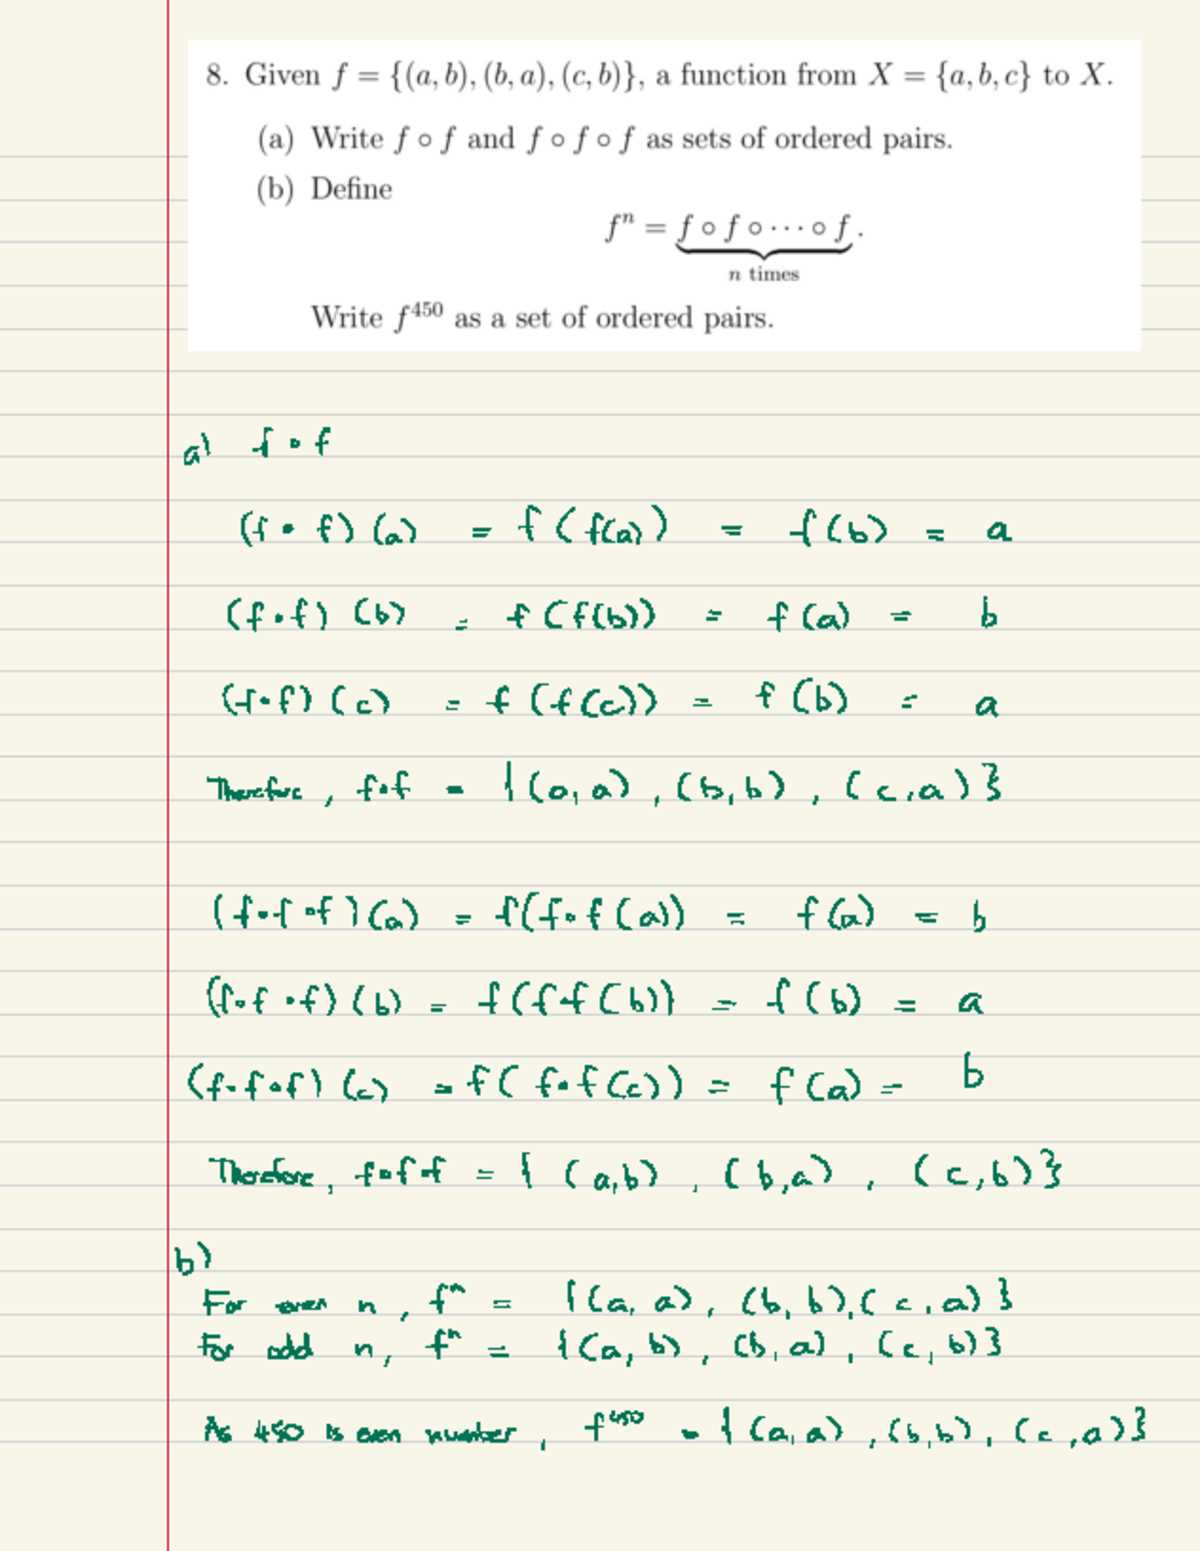 8. Given f = {(a, b), (b, a), (c, b)}, a function from X = {a, b, c} to X.
(a) Write f ∘ f and f ∘ f ∘ f as sets of ordered pairs.
(b) Define
fⁿ = f ∘ f ∘ ⋯ ∘ f .
n times
Write f⁴⁵⁰ as a set of ordered pairs.
a) f ∘ f
(f ∘ f) (a) = f ( f(a) ) = f(b) = a
(f ∘ f) (b) = f (f(b)) = f (a) = b
(f ∘ f) (c) = f (f(c)) = f (b) = a
Therefore , f∘f = { (a, a) , (b, b) , (c, a) }
(f ∘ f ∘ f) (a) = f(f ∘ f (a)) = f (a) = b
(f ∘ f ∘ f) (b) = f (f f (b)) = f (b) = a
(f ∘ f ∘ f) (c) = f ( f ∘ f (c)) = f (a) = b
Therefore , f∘f∘f = { (a, b) , (b, a) , (c, b) }
b)
For even n , fⁿ = { (a, a) , (b, b), (c, a) }
For odd n, fⁿ = { (a, b) , (b, a) , (c, b) }
As 450 is even number , f⁴⁵⁰ = { (a, a) , (b, b) , (c , a) }